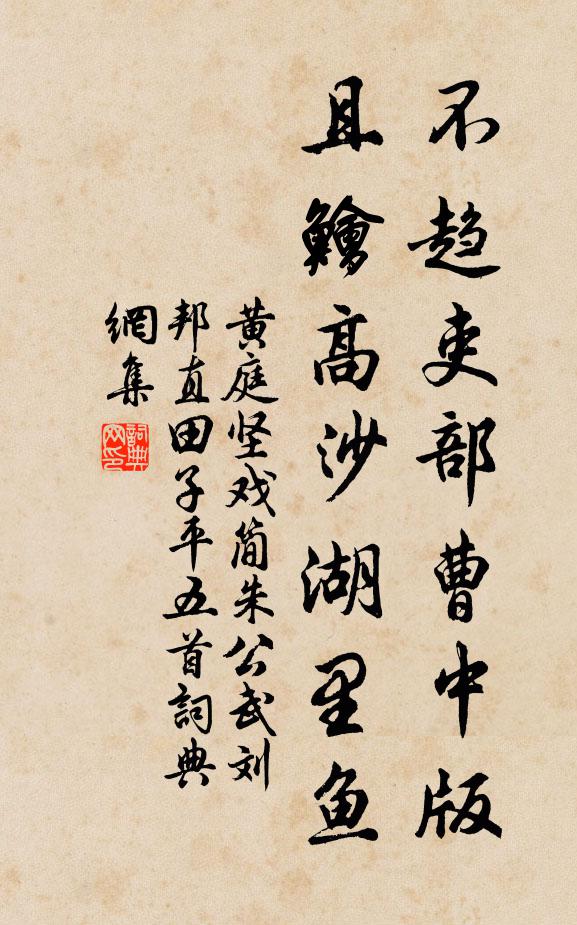 不趋吏部曹中版
且鱠高沙湖里鱼
黄庭坚戏简朱公武刘
邦直田子平五首詞典
網集
詞典网印